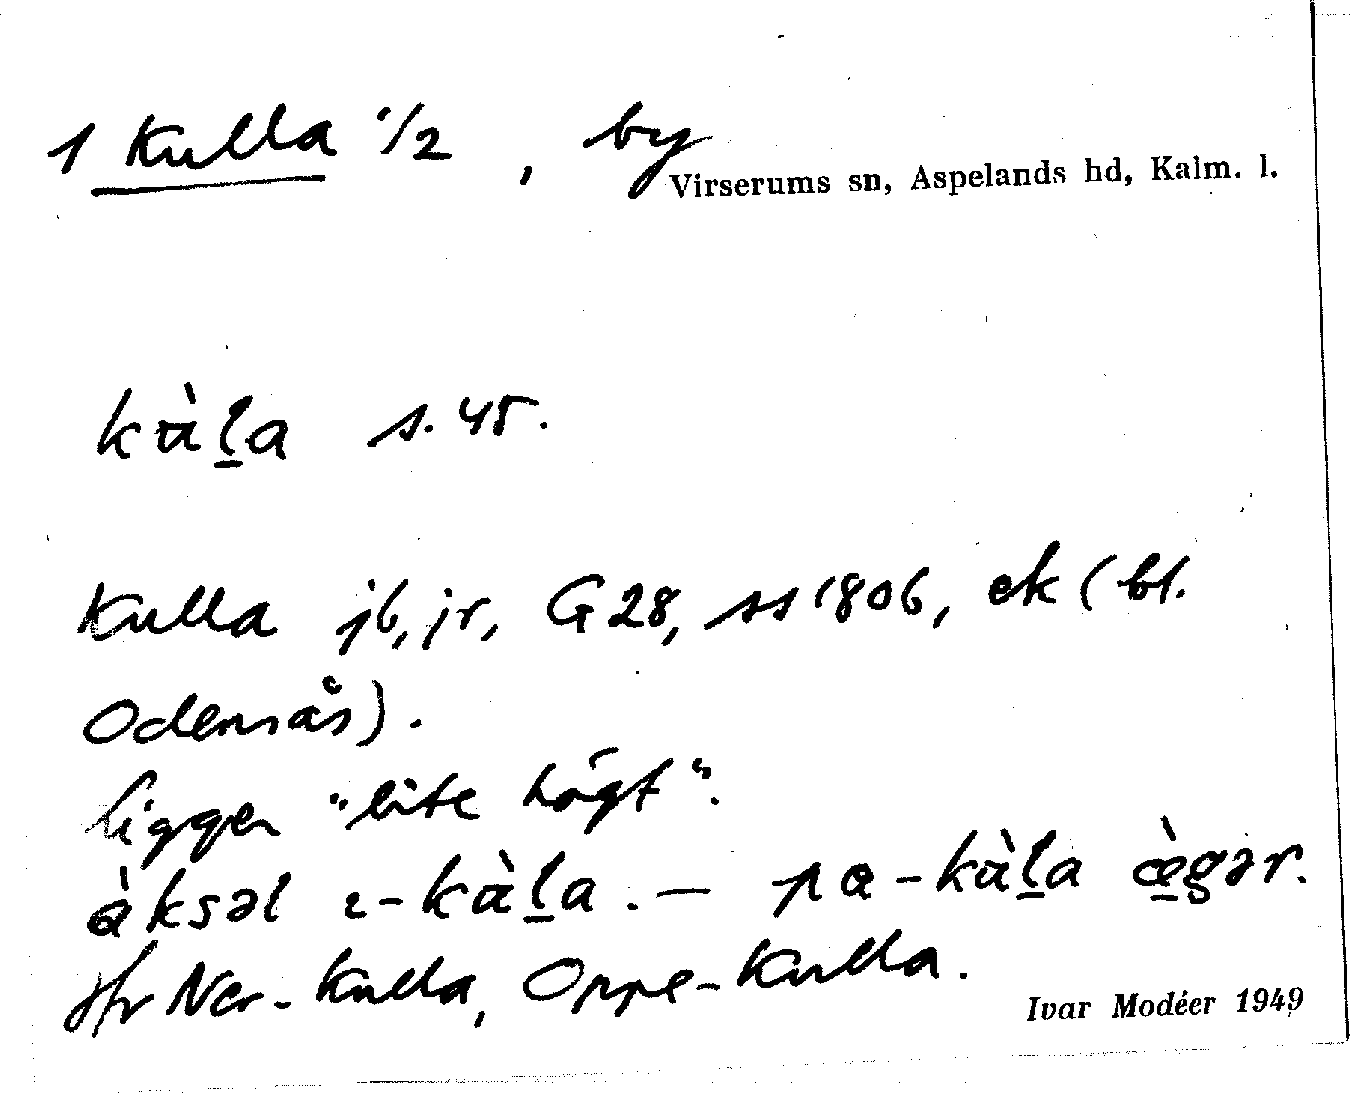 1 Kulla 1/2, by
Virserums sn, Aspelands hd, Kalm. l.
kàl̠a s. 45.
Kulla jb, jr, G28, ss 1806, ek (bl.
Odensås).
ligger "lite högt".
àksəl ɩ-kàl̠a. — pa-kàl̠a æ̠̀gər.
Jfr Ner-Kulla, Oppe-Kulla.
Ivar Modéer 1949